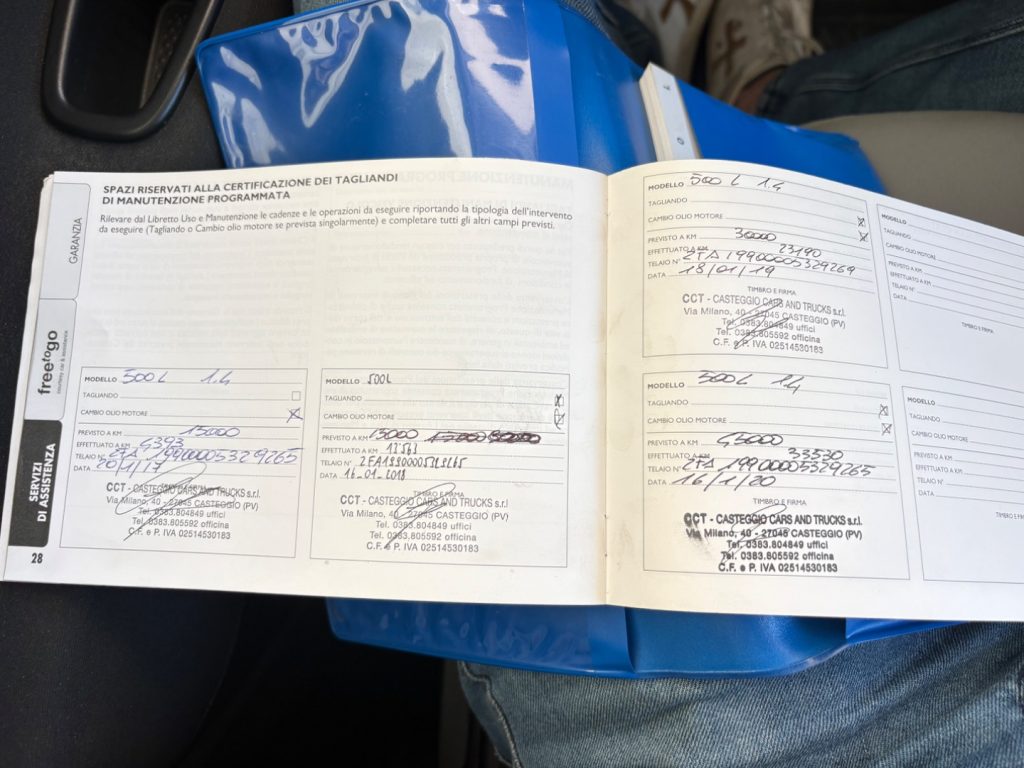 SPAZI RISERVATI ALLA CERTIFICAZIONE DEI TAGLIANDI
DI MANUTENZIONE PROGRAMMATA
Rilevare dal Libretto Uso e Manutenzione le cadenze e le operazioni da eseguire riportando la tipologia dell'intervento
da eseguire (Tagliando o Cambio olio motore se prevista singolarmente) e completare tutti gli altri campi previsti.
GARANZIA
freetogo
SERVIZI
DI ASSISTENZA
28
MODELLO 500L 1.4
TAGLIANDO
CAMBIO OLIO MOTORE X
PREVISTO A KM 15000
EFFETTUATO A KM 4393
TELAIO N° ZFA19900005329265
DATA 20/1/17
TIMBRO E FIRMA
CCT - CASTEGGIO CARS AND TRUCKS s.r.l.
Via Milano, 40 - 27045 CASTEGGIO (PV)
Tel. 0383.804849 uffici
Tel. 0383.805592 officina
C.F. e P. IVA 02514530183
MODELLO 500L
TAGLIANDO X
CAMBIO OLIO MOTORE X
PREVISTO A KM 15000
EFFETTUATO A KM 12563
TELAIO N°
DATA 16-01-2018
TIMBRO E FIRMA
CCT - CASTEGGIO CARS AND TRUCKS s.r.l.
Via Milano, 40 - 27045 CASTEGGIO (PV)
Tel. 0383.804849 uffici
Tel. 0383.805592 officina
C.F. e P. IVA 02514530183
MODELLO 500L 1.4
TAGLIANDO X
CAMBIO OLIO MOTORE X
PREVISTO A KM 30000
EFFETTUATO A KM 23190
TELAIO N° ZFA19900005329269
DATA 18/01/19
TIMBRO E FIRMA
CCT - CASTEGGIO CARS AND TRUCKS s.r.l.
Via Milano, 40 - 27045 CASTEGGIO (PV)
Tel. 0383.804849 uffici
Tel. 0383.805592 officina
C.F. e P. IVA 02514530183
MODELLO 500L 1.4
TAGLIANDO X
CAMBIO OLIO MOTORE X
PREVISTO A KM 45000
EFFETTUATO A KM 33530
TELAIO N° ZFA19900005329265
DATA 16/1/20
TIMBRO E FIRMA
CCT - CASTEGGIO CARS AND TRUCKS s.r.l.
Via Milano, 40 - 27045 CASTEGGIO (PV)
Tel. 0383.804849 uffici
Tel. 0383.805592 officina
C.F. e P. IVA 02514530183
MODELLO
TAGLIANDO
CAMBIO OLIO MOTORE
PREVISTO A KM
EFFETTUATO A KM
TELAIO N°
DATA
TIMBRO E FIRMA
MODELLO
TAGLIANDO
CAMBIO OLIO MOTORE
PREVISTO A KM
EFFETTUATO A KM
TELAIO N°
DATA
TIMBRO E FIRMA